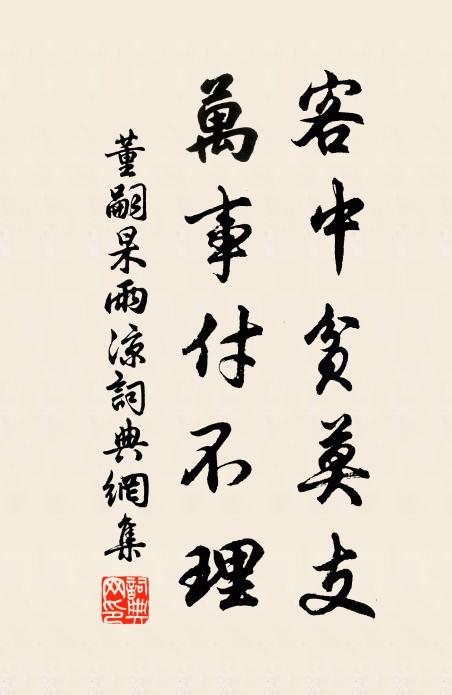 客中貧莫支
萬事付不理
董嗣杲雨凉詞典網集
詞典网印